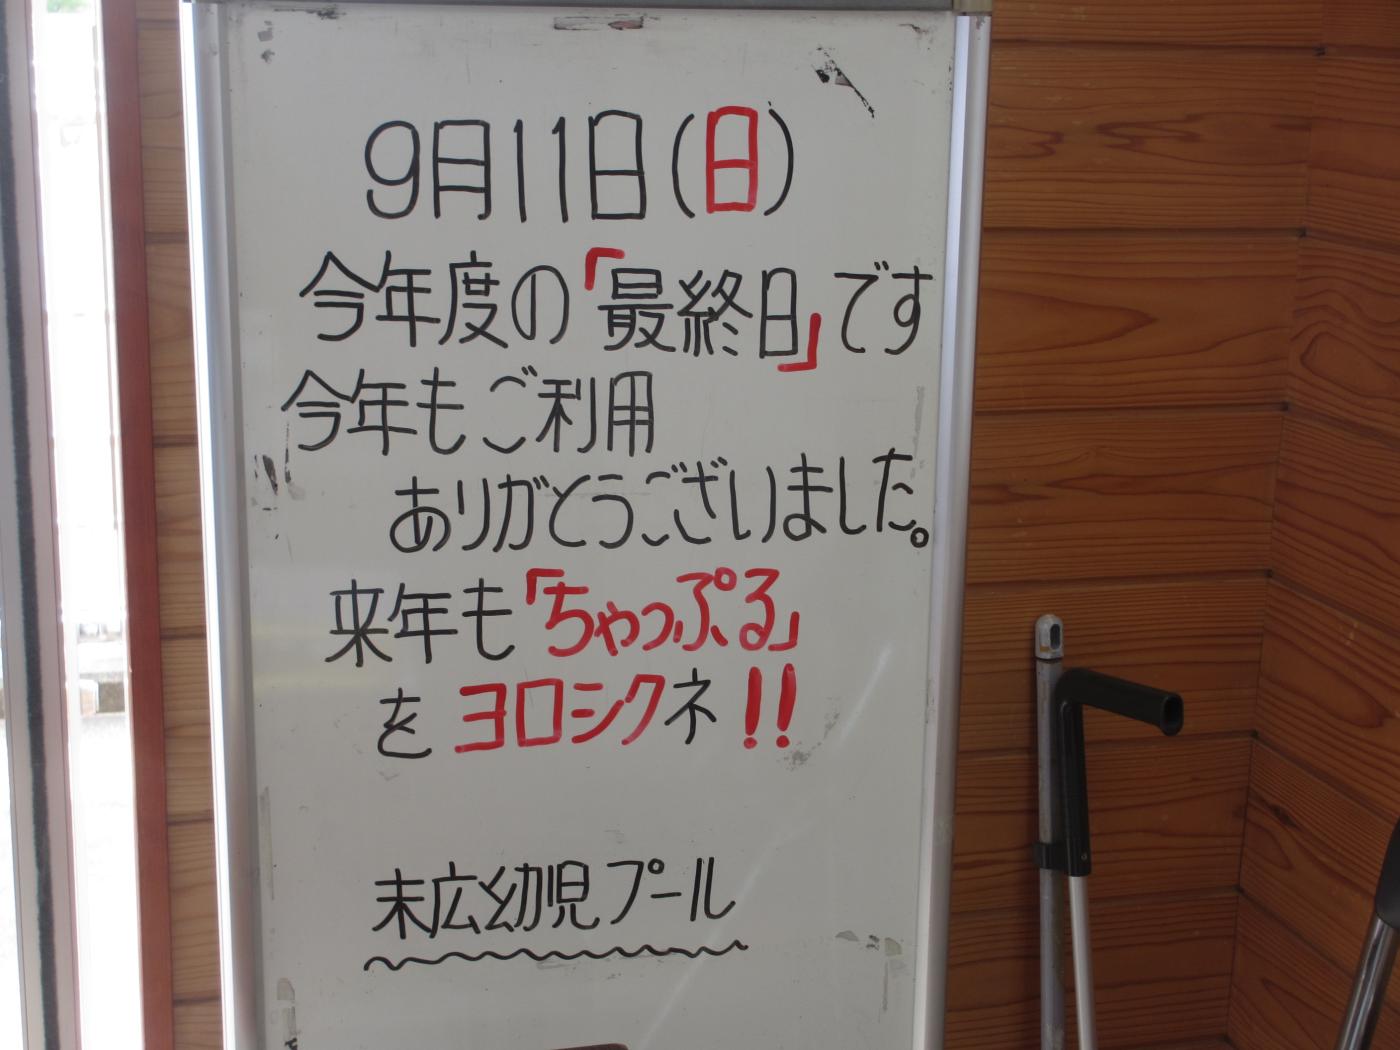 9月11日(日)
今年度の「最終日」です
今年もご利用
ありがとうございました。
来年も「ちゃっぷる」
をヨロシクネ!!
末広幼児プール